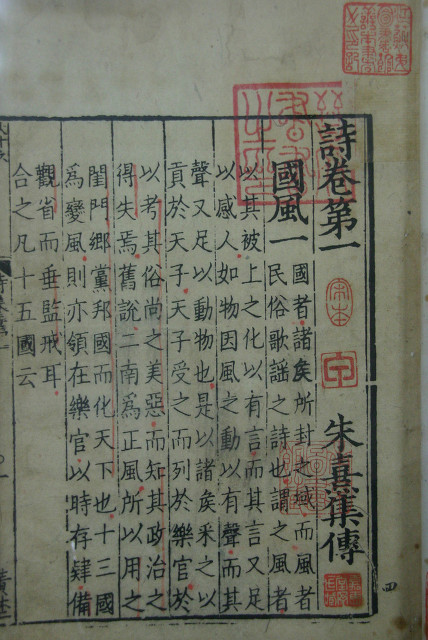 詩卷第一
朱熹集傳
宋本
國風一
國者諸矦所封之域而風者
民俗歌謡之詩也謂之風者
以其被上之化以有言而其言又足
以感人如物因風之動以有聲而其
聲又足以動物也是以諸矦采之以
貢於天子天子受之而列於樂官於
以考其俗尚之美惡而知其政治之
得失焉舊說二南為正風所以用之
閨門鄉黨邦國而化天下也十三國
為變風則亦領在樂官以時存肄備
觀省而垂監戒耳
合之凡十五國云
四